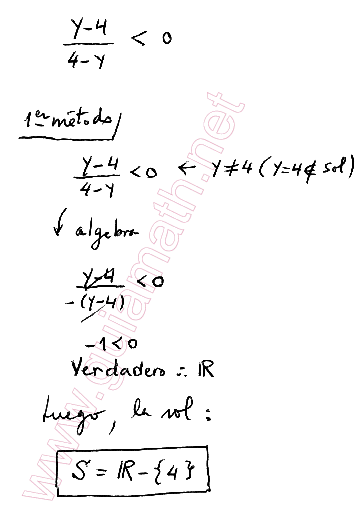 Y-4
4-Y < 0
1er método
Y-4
4-Y < 0 ← Y≠4 (Y=4∉ sol)
↓ algebra
Y-4
-(Y-4) < 0
-1<0
Verdadero ∴ ℝ
Luego, la sol:
S = ℝ-{4}
www.guiamath.net